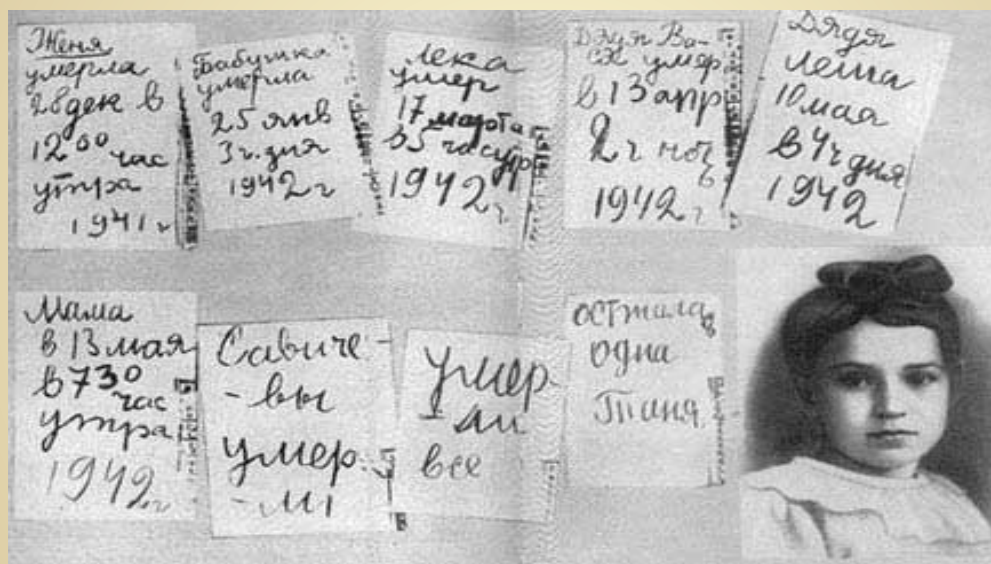 Женя
умерла
28 дек в
12 00 час
утра
1941 г
Бабушка
умерла
25 янв
3 ч. дня
1942 г
Лека
умер
17 марта
в 5 час утр
1942 г
Дядя Ва-
ся умер
в 13 апр
2 ч ноч
1942 г
Дядя
Леша
10 мая
в 4 ч дня
1942
Мама
в 13 мая
в 7 30
час
утра
1942 г
Савиче-
-вы
умер
-ли
умер-
-ли
все
осталась
одна
Таня